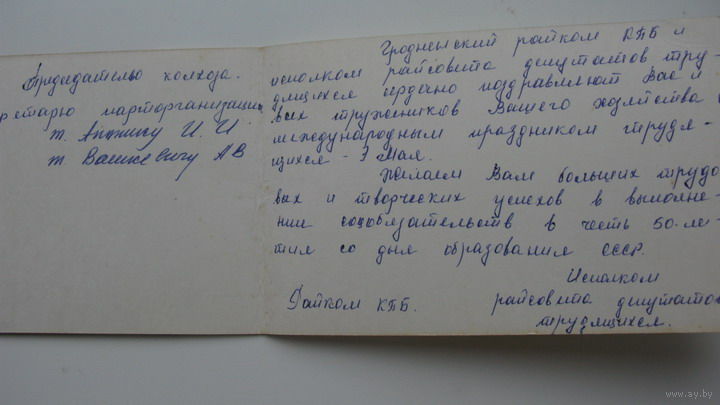 Председателю колхоза.
ретарю парторганизации
т. И. И.
т Вашкевичу А В
Гродненский райком КПБ и
исполком райсовета депутатов тру-
дящихся сердечно поздравляют Вас и
всех тружеников Вашего хозяйства с
международным праздником трудя-
щихся - 1 Мая.
Желаем Вам больших трудо
вых и творческих успехов в выполне-
нии соцобязательств в честь 50-ле-
тия со дня образования СССР.
Райком КПБ.
Исполком
райсовета депутатов
трудящихся.
www.ay.by